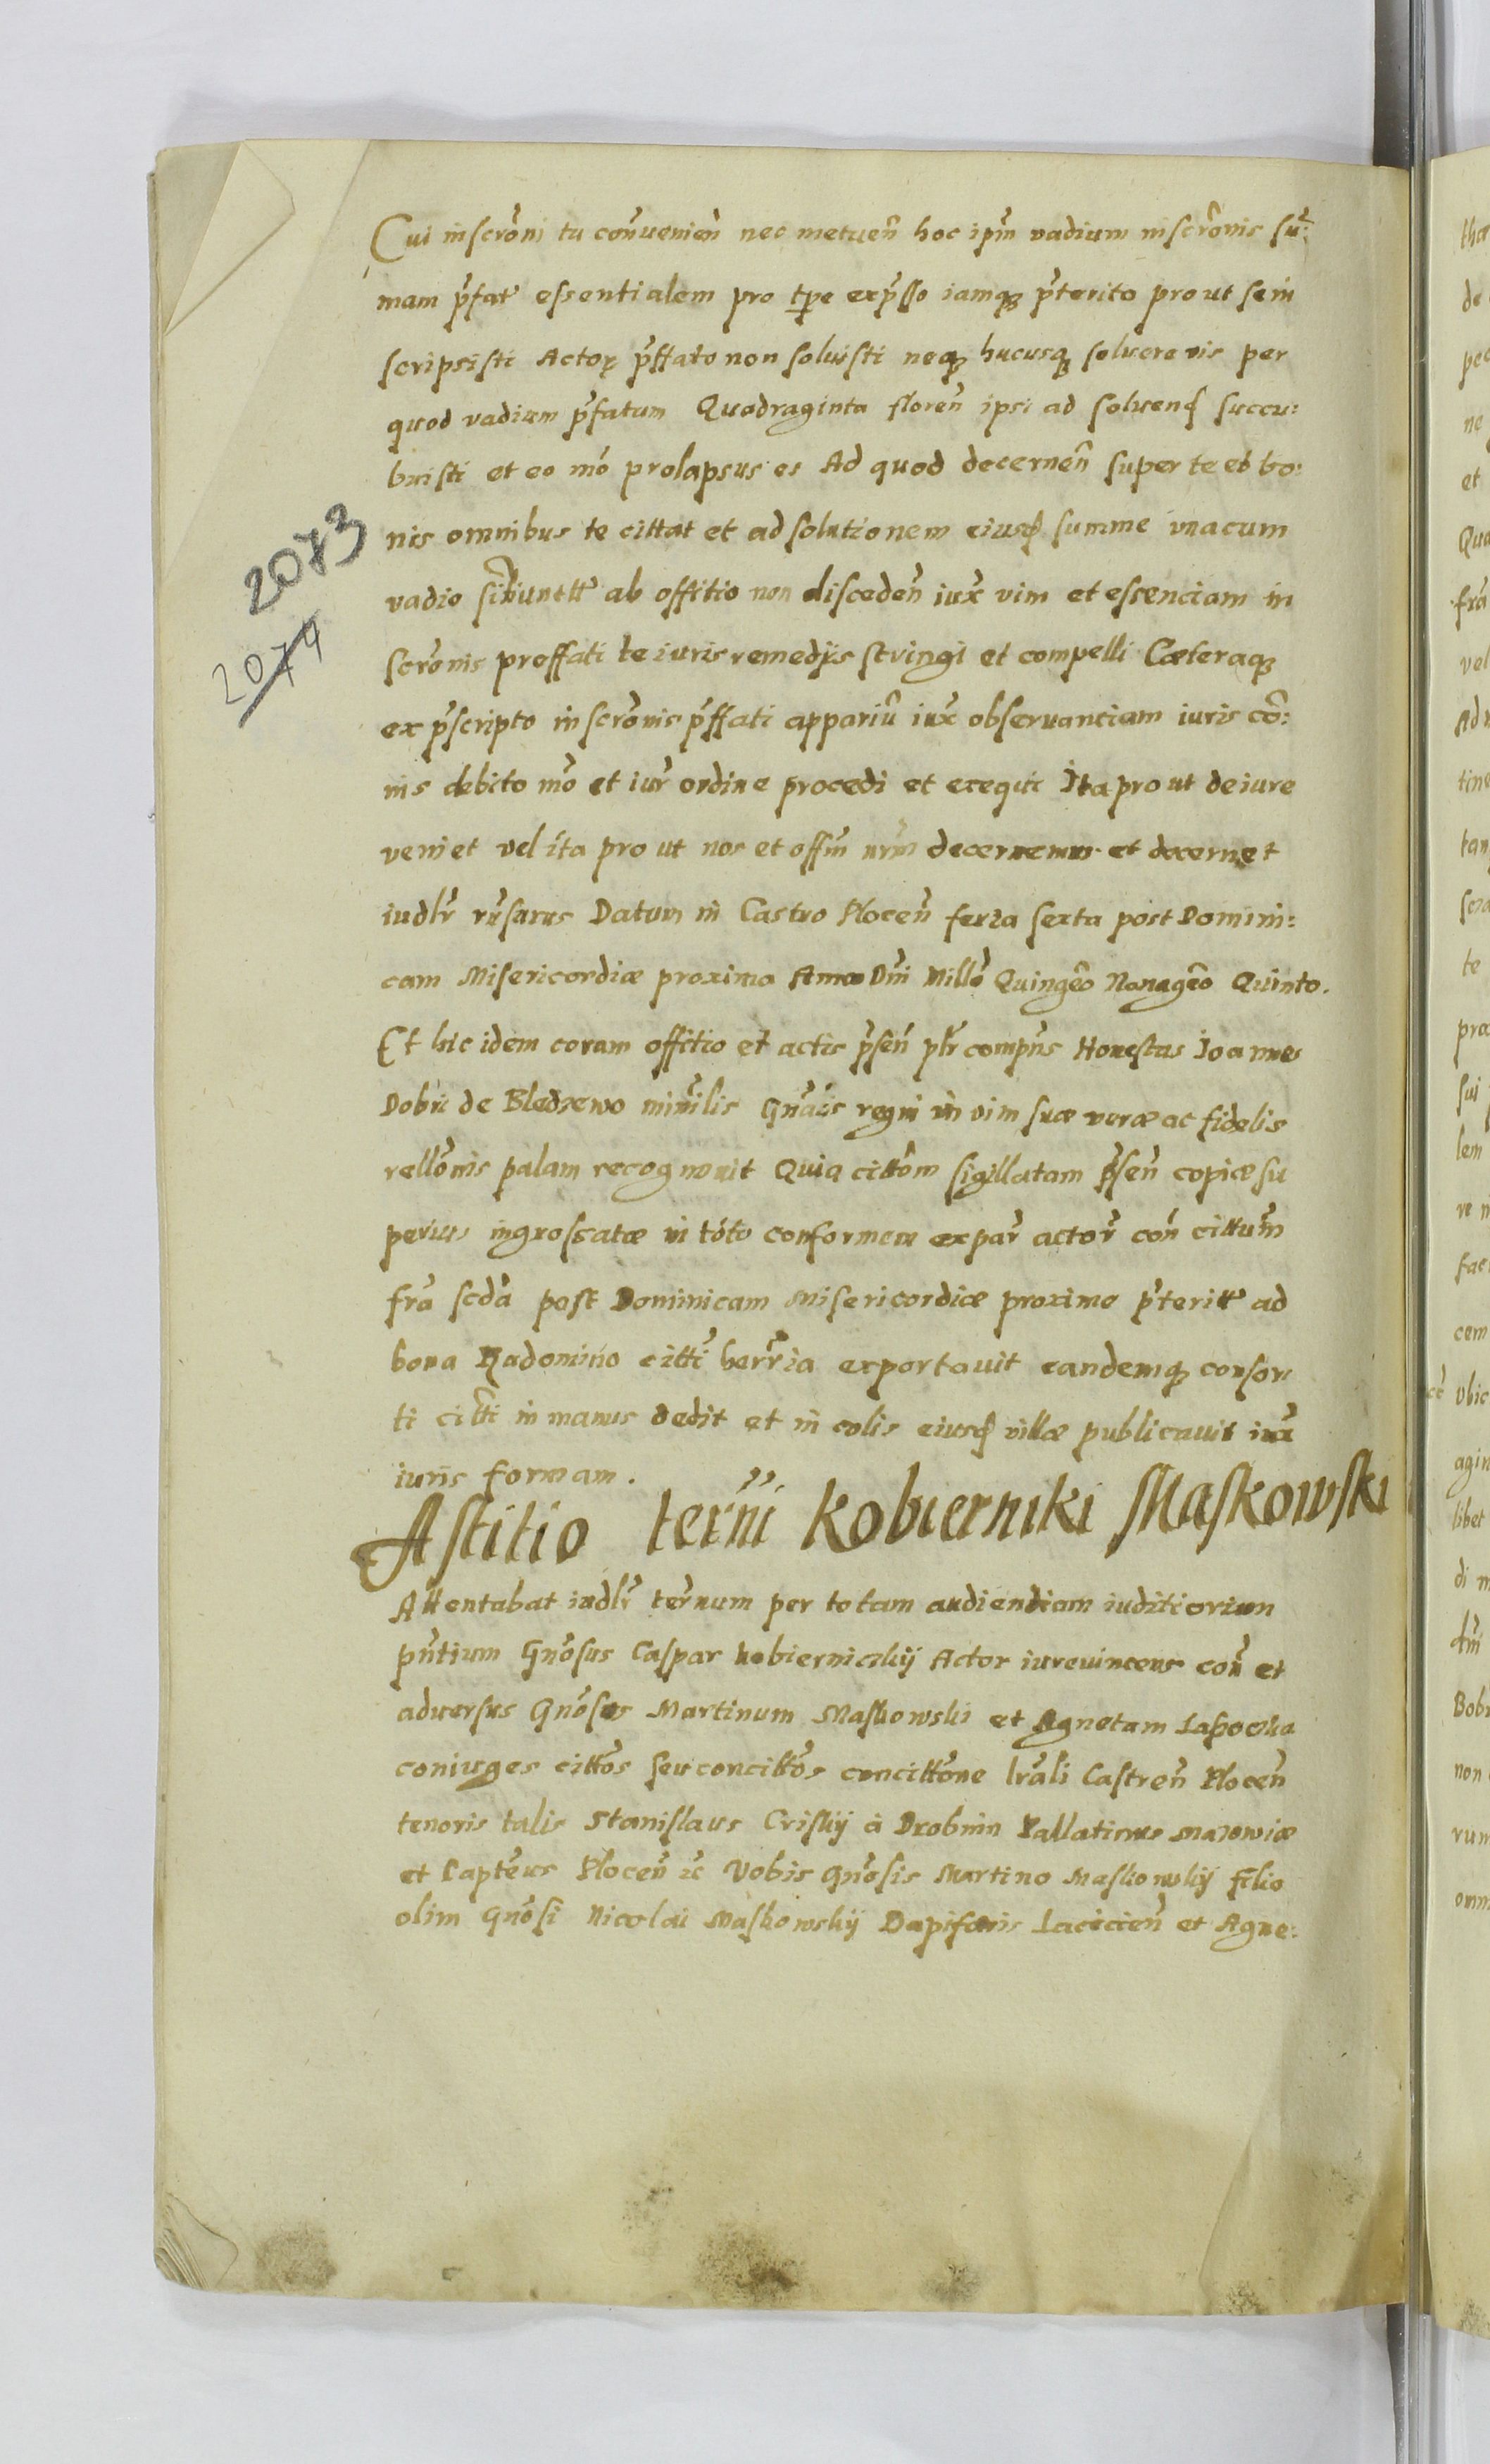 Cui inscrõni tu conuenien̄ nec metuen̄ hoc ipm̄ vadium inscrõnis su:
mam p̄fat essentialem pro tpe exp̄sso iamq3 p̄terito prout se in
scripsisti Actorȩ p̄ffato non soluisti neq3 hucusq3 soluere vis per
quod vadium p̄fatum Quadraginta floren̄ ipsi ad soluend succu:
buisti et eo mō prolapsus es Ad quod decernen̄ super te et bo:
nis omnibus te cittat et ad solutionem eiusd summe vnacum
2073
vadio ab offitio non disceden̄ iux̄ vim et essenciam in
2074
scrõnis proffati te iuris remedijs stringi et compelli Cæteraq3
ex p̄scripto inscrõnis p̄ffati appariū iux̄ obseruantiam iuris cõ:
nis debito mō et iur̄ ordine procedi et exequi Ita pro ut de iure
veniet vel ita pro ut nos et offm̄ nrm̄ decernemus et decernet
iudlr̄ rn̄surus Datum in Castro Plocen̄ feria sexta post Domini:
cam Misericordiæ proxima Anno Dn̄i Millō Quingēo Nonagēo Quinto.
Et hic idem coram offitio et actis p̄sen̄ plr̄ compn̄s Honestus Joannes
Dobri de Bledzewo minr̄ilis Gnālis regni in vim suæ veræ ac fidelis
rellōnis palam recognouit Quia cittōm sigillatam p̄sen̄ copiæ su
perius ingrossatæ in toto conformem ex par̄ actor̄ con̄ cittum̄
frā scdā post Dominicam Misericordiæ proxime p̄teritt ad
bona Radomino citti herr̄ia exportauit eandemq3 consor
ti citti in manus dedit et in colis eiusd villæ publicauit iux̄
iuris formam.
Astitio terni Kobierniki Maskowski
Attentabat iudlr̄ ter̄num per totam audiendiam iuditiorum
pn̄tium Gnōsus Caspar Kobierniczkij Actor iureuincens con̄ et
aduersus Gnōsos Martinum Maskowski et Agnetam Lapoczka
coniuges cittōs seu concittōs concittōne lrāli Castren̄ Plocen̄
tenoris talis Stanislaus Criskij à Drobnin Pallatinus Mazowiæ
et Capten̄us Plocen̄ zc Vobis Gnōsis Martino Maskowskij filio
olim Gnōsi Nicolai Maskowskij Dapiferis Lacicien̄ et Agne: